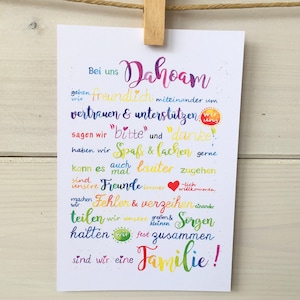 Bei uns Dahoam
gehen wir freundlich miteinander um
vertrauen & unterstützen wir uns
sagen wir "bitte" und "danke"
haben wir Spaß & lachen gerne
kann es auch mal lauter zugehen
sind unsere Freunde immer ❤-lich willkommen
machen wir Fehler & verzeihen
teilen wir unsere großen & kleinen Sorgen
halten fest zusammen
sind wir eine Familie!